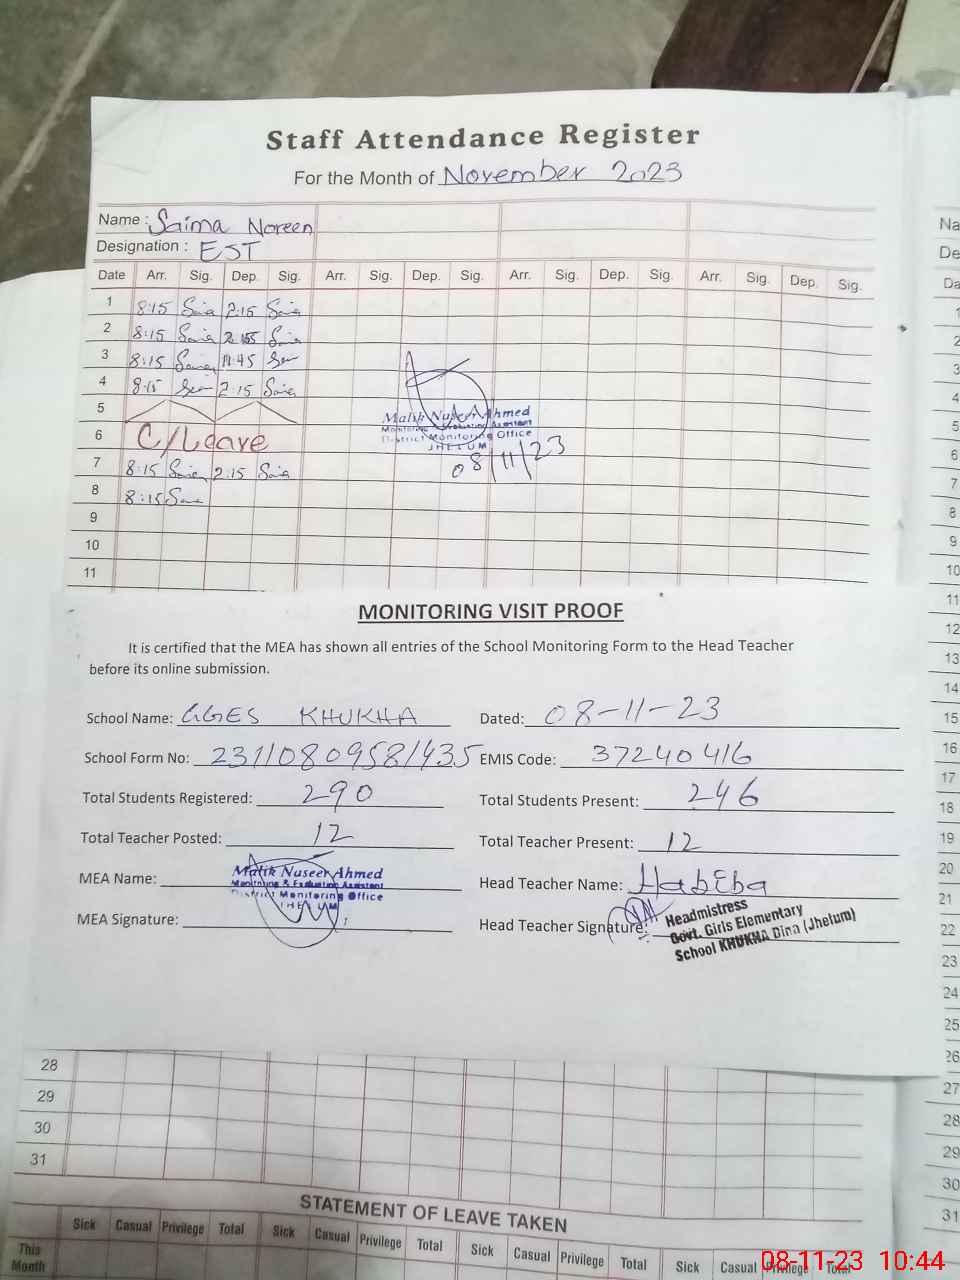 Staff Attendance Register
For the Month of November 2023
Name : Saima Noreen
Designation : EST
Date Arr. Sig. Dep. Sig. Arr. Sig. Dep. Sig. Arr. Sig. Dep. Sig. Arr. Sig. Dep. Sig.
1 8:15 Saima 2:15 Saima
2 8:15 Saima Saima
3 8:15 Saima 11:45
4 8:15 2:15 Saima
5
6 C/Leave
7 8:15 Saima 2:15 Saima
8 8:15 Saima
9
10
11
Malik Nuseer Ahmed
Monitoring & Evaluation Assistant
District Monitoring Office
JHELUM
08/11/23
MONITORING VISIT PROOF
It is certified that the MEA has shown all entries of the School Monitoring Form to the Head Teacher
before its online submission.
School Name: GGES KHUKHA Dated: 08-11-23
School Form No: EMIS Code: 37240416
Total Students Registered: 290 Total Students Present: 246
Total Teacher Posted: 12 Total Teacher Present: 12
MEA Name: Malik Nuseer Ahmed
Monitoring & Evaluation Assistant
District Monitoring Office
JHELUM
Head Teacher Name: Habiba
MEA Signature: Head Teacher Signature:
Headmistress
Govt. Girls Elementary
School KHUKHA Dina (Jhelum)
28
29
30
31
STATEMENT OF LEAVE TAKEN
Sick Casual Privilege Total Sick Casual Privilege Total Sick Casual Privilege Total Sick Casual Privilege Total
This
Month
Na
De
Da
1
2
3
4
5
6
7
8
9
10
11
12
13
14
15
16
17
18
19
20
21
22
23
24
25
26
27
28
29
30
31
08-11-23 10:44